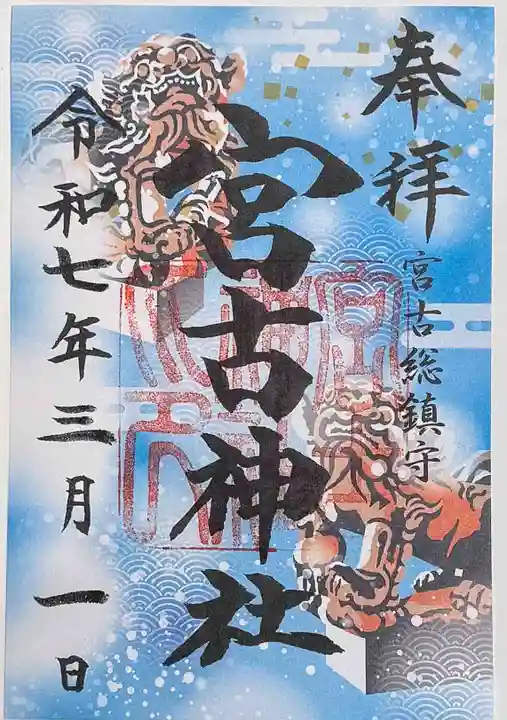 奉拝
宮古総鎮守
宮古神社
令和七年三月一日